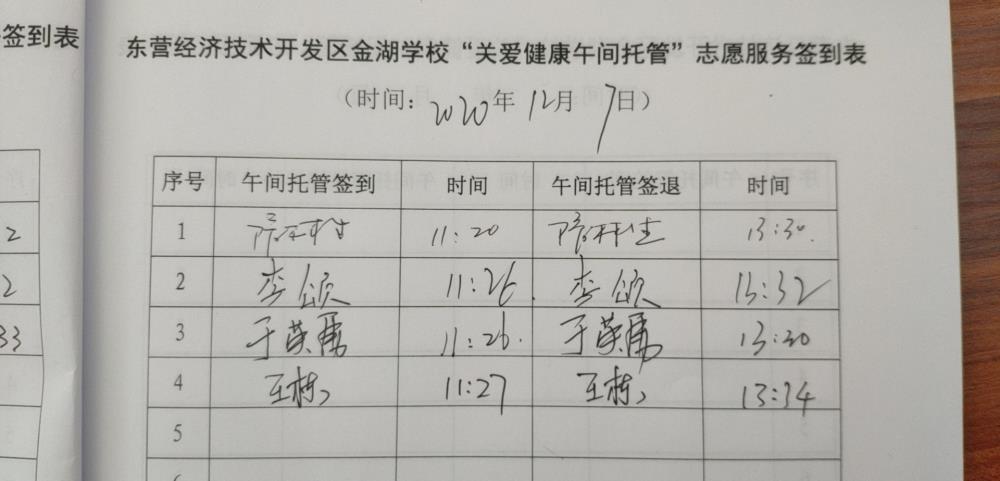 签到表
东营经济技术开发区金湖学校“关爱健康午间托管”志愿服务签到表
（时间：2020年 12月 7日）
序号 午间托管签到 时间 午间托管签退 时间
1 11:20 13:30.
2 李颂 11:26 李颂 13:32
3 于英勇 11:26. 于英勇 13:30
4 王栋 11:27 王栋 13:34
5
2
2
33